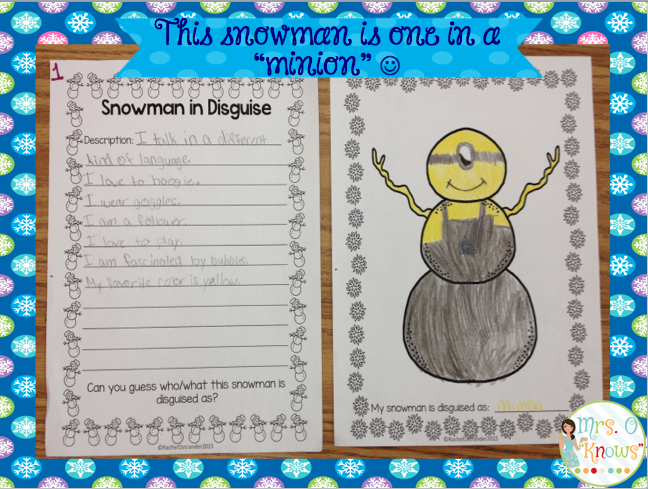 This snowman is one in a
"minion" ☺
1
Snowman in Disguise
Description: I talk in a different
kind of language.
I love to boogie.
I wear goggles.
I am a follower.
I love to play.
I am fascinated by bubble
My favorite color is yellow.
Can you guess who/what this snowman is
disguised as?
©RachelOstrander2013
My snowman is disguised as: minion
©RachelOstrander2013
Mrs. O
"Knows"